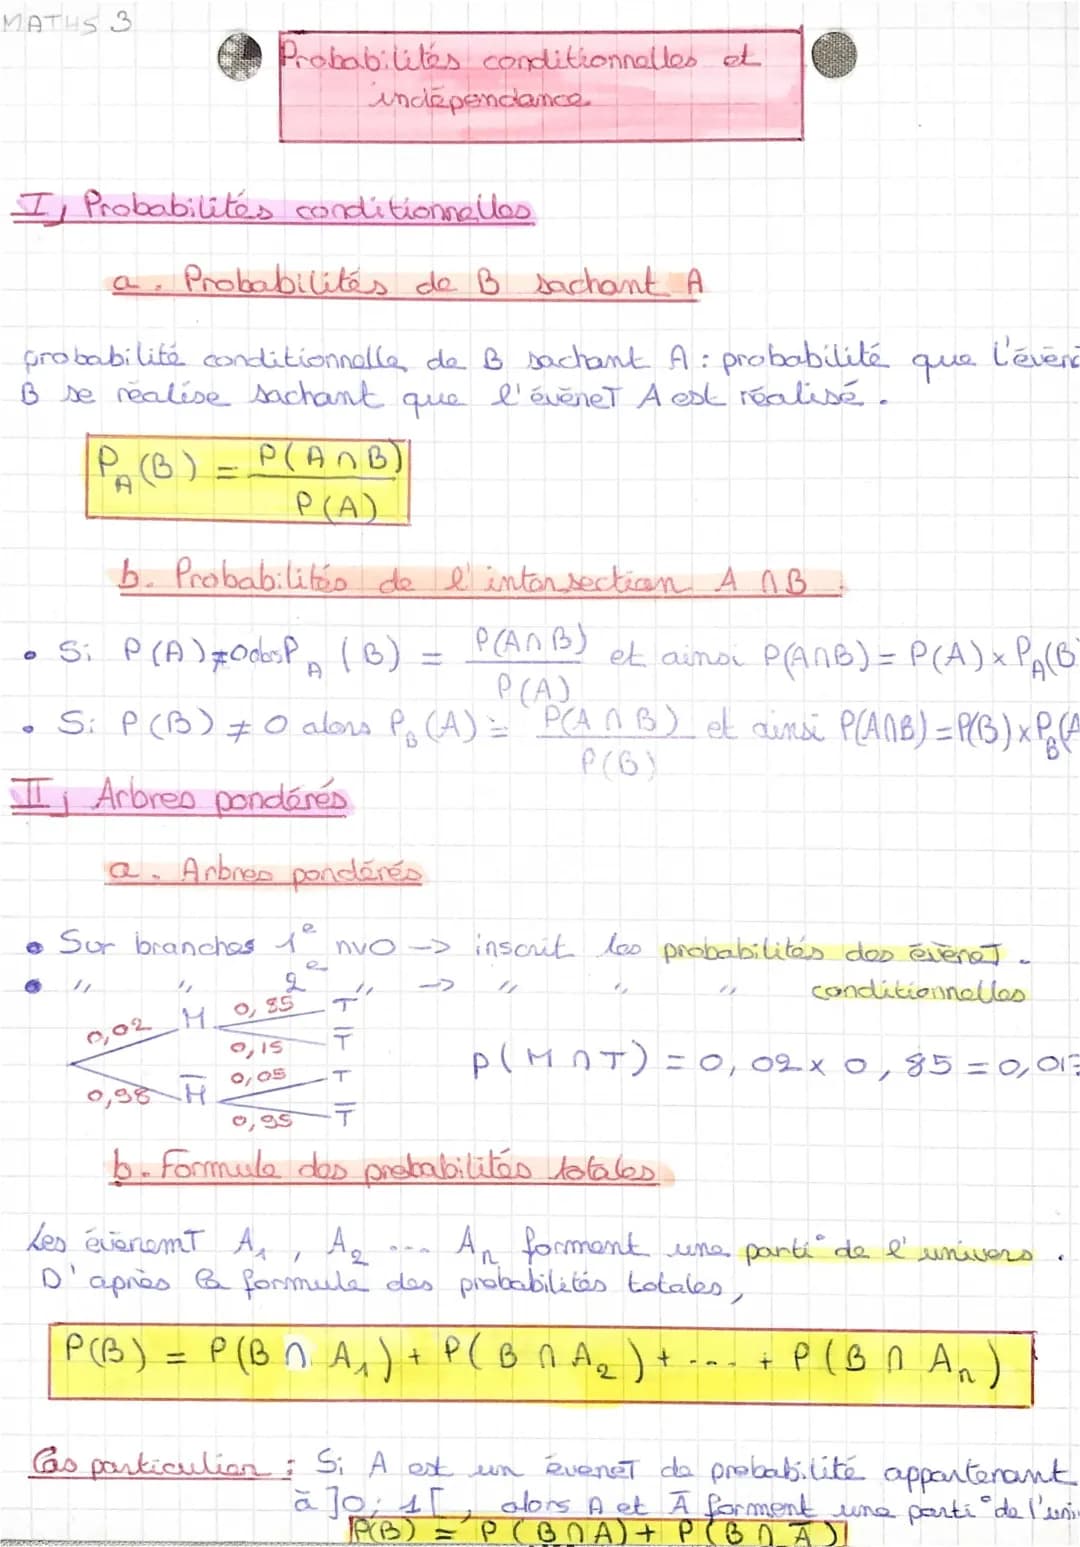 MATHS 3
Probabilités conditionnelles et
indépendance
I, Probabilités conditionnelles
a. Probabilités de B sachant A
probabilité conditionnelle de B sachant A : probabilité que l'évène
B se réalise sachant que l'évèneT A est réalisé.
P_A(B) = P(A∩B) / P(A)
b. Probabilités de l'intersection A ∩ B.
• Si P(A) ≠ 0 alors P_A(B) = P(A∩B) / P(A) et ainsi P(A∩B) = P(A) × P_A(B
• Si P(B) ≠ 0 alors P_B(A) = P(A∩B) / P(B) et ainsi P(A∩B) = P(B) × P_B(A
II, Arbres pondérés
a. Arbres pondérés
• Sur branches 1e nvo -> inscrit les probabilités des évèneT.
• " " 2e " -> " " " conditionnelles
0,02 M 0,85 T
0,15 T̅
0,98 M̅ 0,05 T
0,95 T̅
P(M∩T) = 0,02 × 0,85 = 0,017
b. Formule des probabilités totales
Les évènemT A₁, A₂ ... Aₙ forment une parti° de l'univers.
D'après la formule des probabilités totales,
P(B) = P(B ∩ A₁) + P(B ∩ A₂) + ... + P(B ∩ Aₙ)
Cas particulier : Si A est un évèneT de probabilité appartenant
à ]0; 1[, alors A et A̅ forment une parti° de l'uni
P(B) = P(B∩A) + P(B∩A̅)